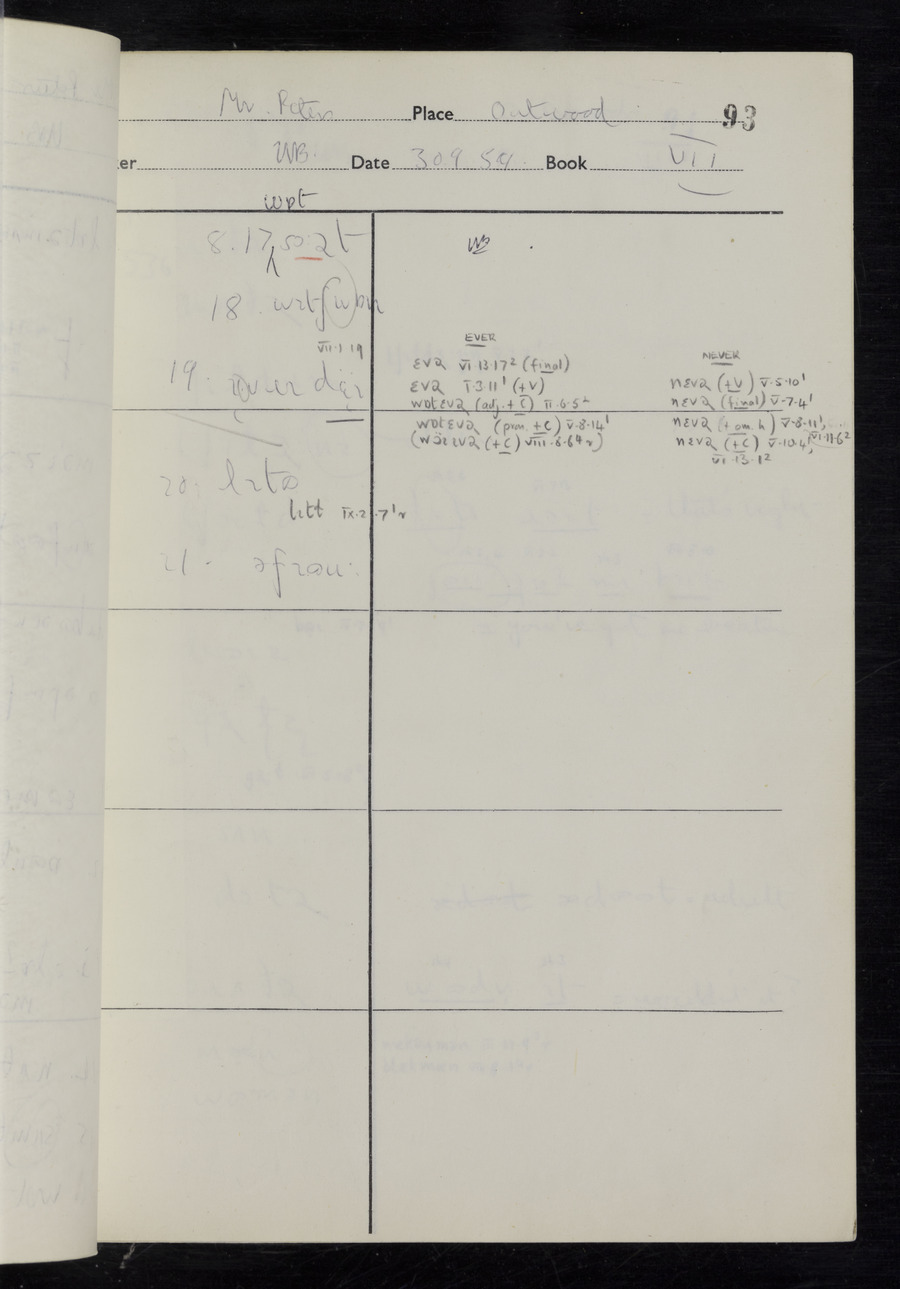 Mr. Peters Place Outwood 93
er WB. Date 30 9 59. Book VII
wpt
8. 17 so:ət WB
18. wɪtʃ
VII.1.19
19. dɛ̈ɪ
EVER
ɛvə VI.13.17² (final)
ɛvə I.3.11¹ (+V)
wɒtɛvə (adj. + C) II.6.5²
wɒtɛvə (pron. + C) V.8.14¹
(+C) VIII.6.6⁴ r)
NEVER
nɛvə (+V) V.5.10¹
nɛvə (final) V.7.4¹
nɛvə (+ om. h) V.8.11¹,
nɛvə (+C) V.10.4, VI.11.6²
VI.13.1²
20.
IX.2.7¹r
21. əfɹəʊ: